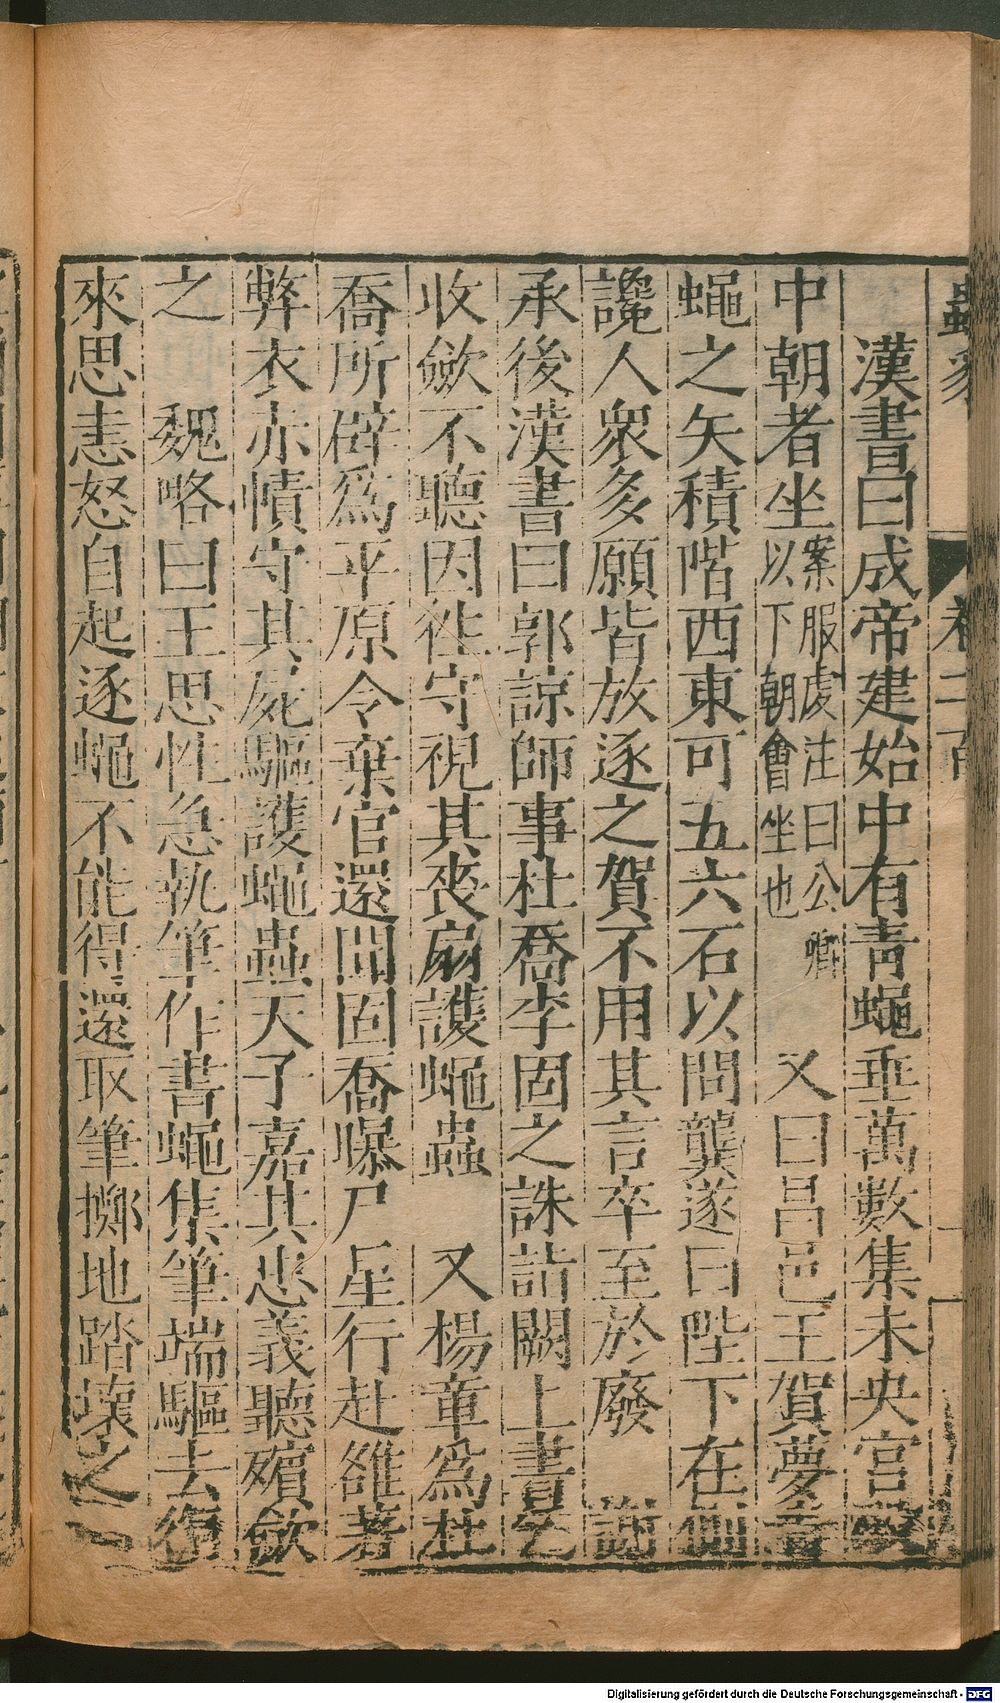 漢書曰成帝建始中有青蠅垂萬數集未央宮殿
中朝者坐案服虔注曰公卿以下朝會坐也　又曰昌邑王賀夢青
蠅之矢積階西東可五六石以問龔遂曰陛下在側
讒人衆多願皆放逐之賀不用其言卒至於廢　謝
承後漢書曰郭諒師事杜喬李固之誅詣闕上書乞
收斂不聽因徃守視其喪扇護蠅蟲　又楊章爲杜
喬所辟爲平原令棄官還聞固喬曝尸星行赴雒著
弊衣赤幘守其屍驅護蠅蟲天子嘉其忠義聽殯斂
之　魏略曰王思性急執筆作書蠅集筆端驅去復
來思恚怒自起逐蠅不能得還取筆擲地踏壞之
Digitalisierung gefördert durch die Deutsche Forschungsgemeinschaft - DFG